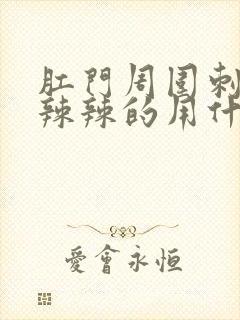 肛門周圍刺
辣辣的用什
愛會永恒